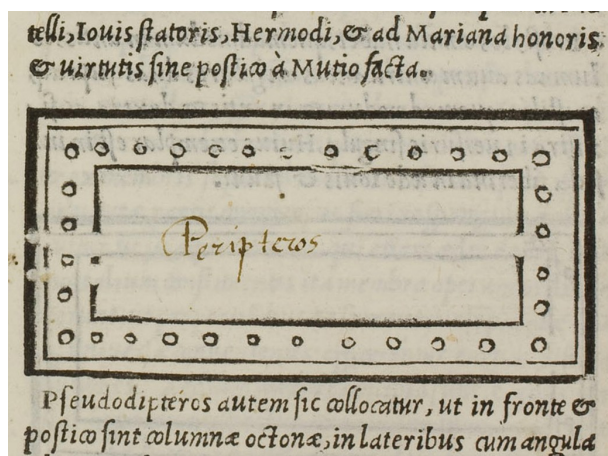 telli, Iouis statoris, Hermodi, & ad Mariana honoris,
& uirtutis sine postico à Mutio facta.
Peripteros
Pseudodipteros autem sic collocatur, ut in fronte &
postico sint columnæ octonæ, in lateribus cum angula